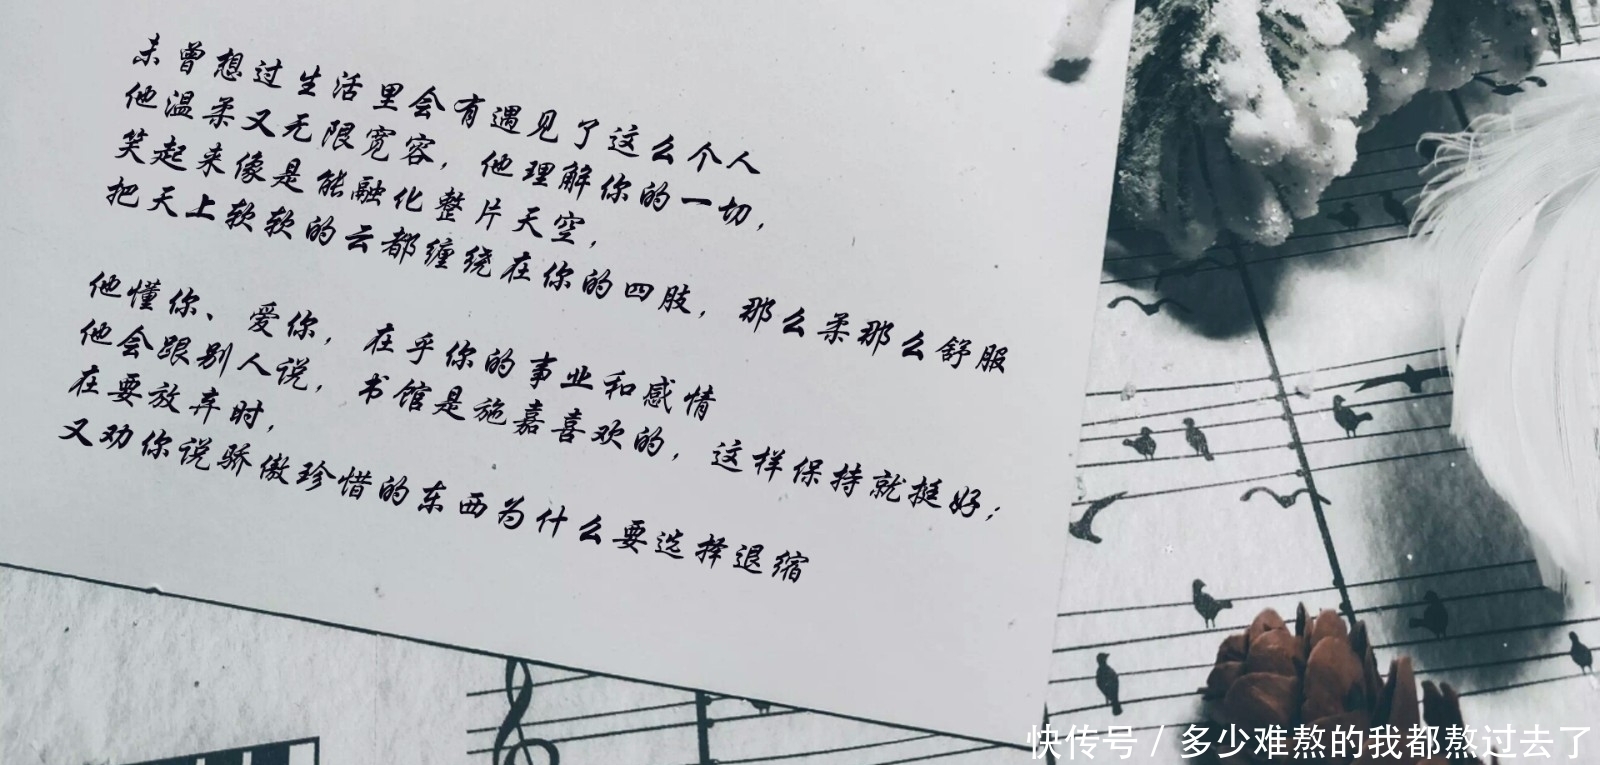 未曾想过生活里会有遇见了这么个人
他温柔又无限宽容，他理解你的一切，
笑起来像是能融化整片天空，
把天上软软的云都缠绕在你的四肢，那么柔那么舒服
他懂你、爱你，在乎你的事业和感情
他会跟别人说，书馆是施嘉喜欢的，这样保持就挺好；
在要放弃时，
又劝你说骄傲珍惜的东西为什么要选择退缩
快传号 / 多少难熬的我都熬过去了